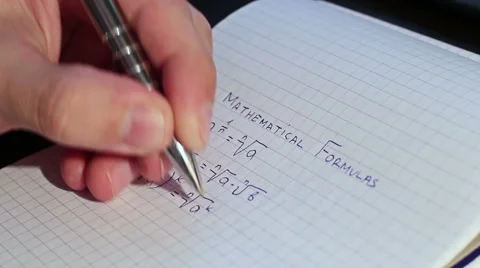 MATHEMATICAL FORMULAS
a^{1/n} = ⁿ√a
= ⁿ√a · ⁿ√b
)^k = ⁿ√a^k